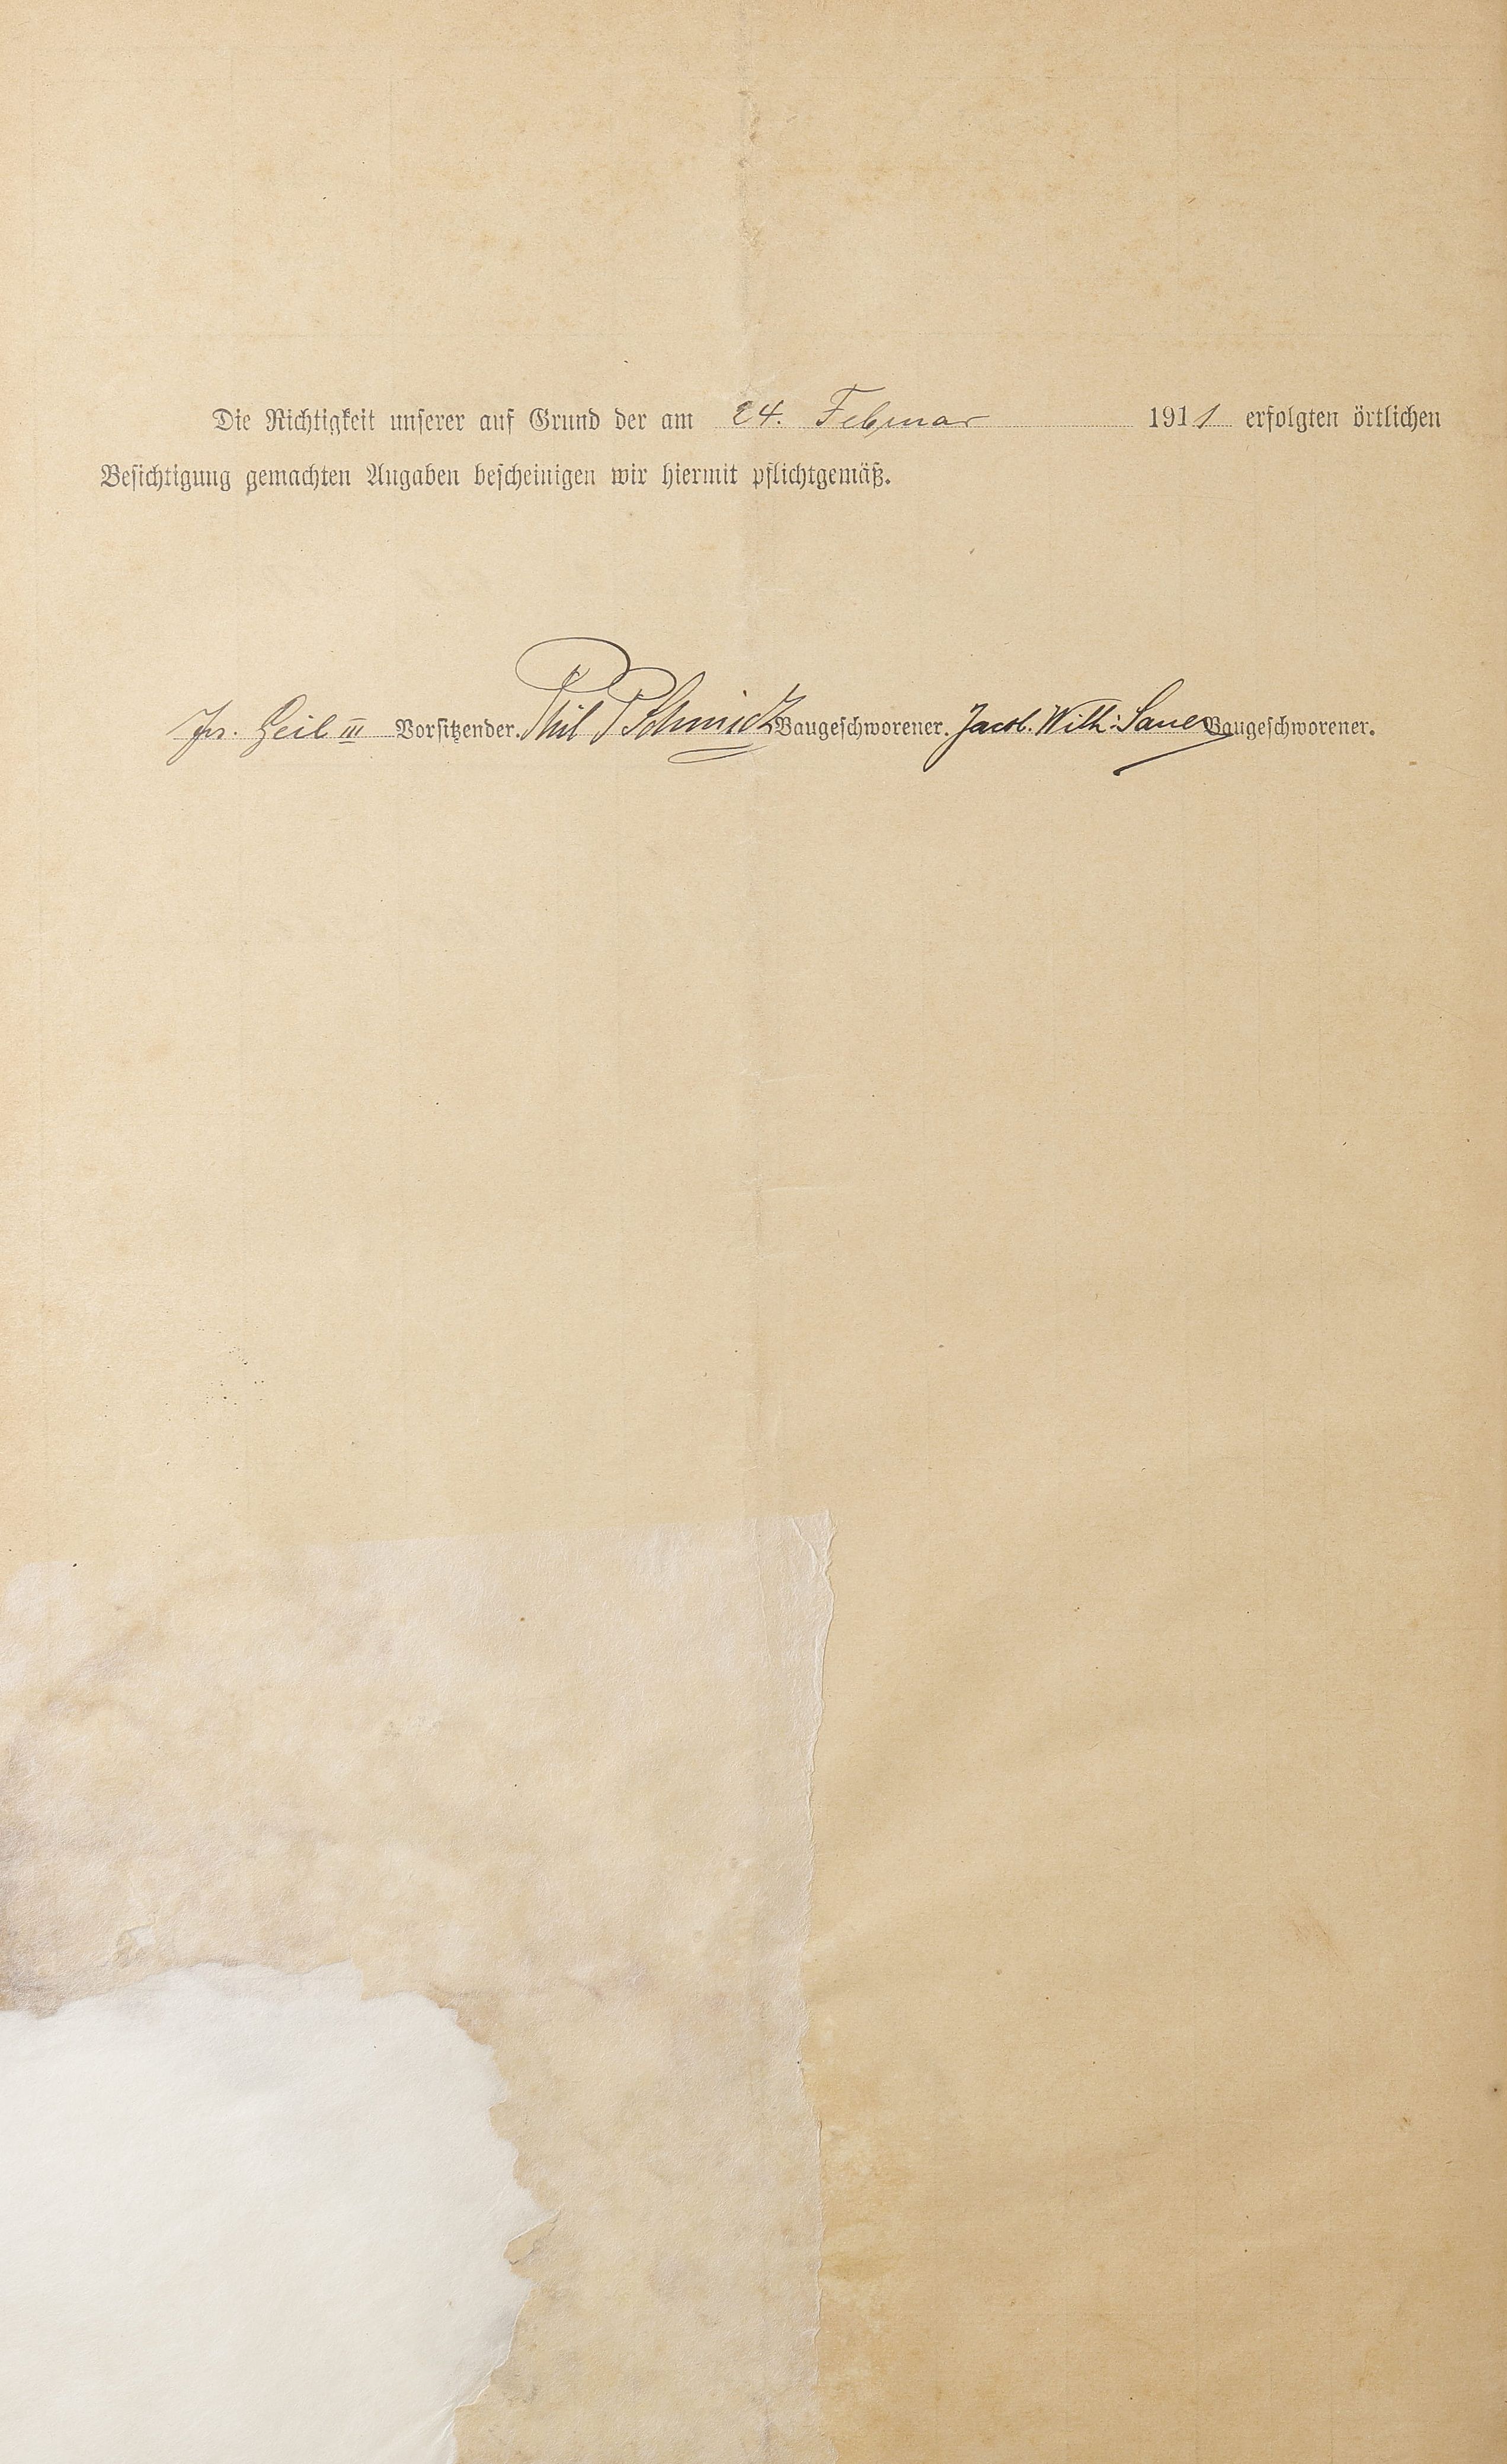 Die Richtigkeit unserer auf Grund der am 24. Februar 1911 erfolgten örtlichen
Besichtigung gemachten Angaben bescheinigen wir hiermit pflichtgemäß.
Geil III Vorsitzender. Phil P Schmidt Baugeschworener. Jacob. Wilh: Sauer Baugeschworener.